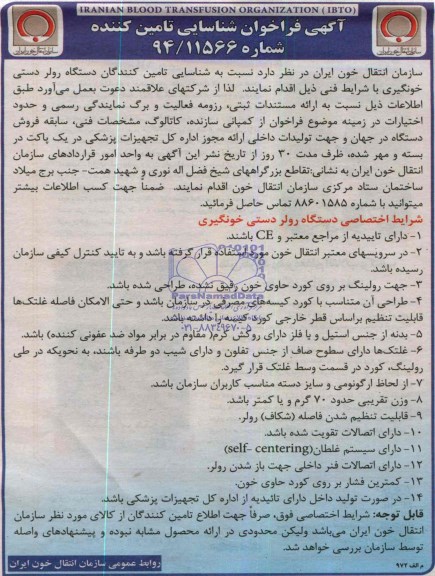 IRANIAN BLOOD TRANSFUSION ORGANIZATION ( IBTO)
آگهی فراخوان شناسایی تامین کننده
شماره ۹۴/۱۱۵۶۶
سازمان انتقال خون ایران در نظر دارد نسبت به شناسایی تامین کنندگان دستگاه رولر دستی
خونگیری با شرایط فنی ذیل اقدام نمایند. لذا از شرکتهای علاقمند دعوت بعمل می‌آورد طبق
اطلاعات ذیل نسبت به ارائه مستندات ثبتی، رزومه فعالیت و برگ نمایندگی رسمی و حدود
اختیارات در زمینه موضوع فراخوان از کمپانی سازنده، کاتالوگ، مشخصات فنی، سابقه فروش
دستگاه در جهان و جهت تولیدات داخلی ارائه مجوز اداره کل تجهیزات پزشکی در یک پاکت در
بسته و مهر شده، ظرف مدت ۳۰ روز از تاریخ نشر این آگهی به واحد امور قراردادهای سازمان
انتقال خون ایران به نشانی:تقاطع بزرگراههای شیخ فضل اله نوری و شهید همت- جنب برج میلاد
ساختمان ستاد مرکزی سازمان انتقال خون اقدام نمایند. ضمناً جهت کسب اطلاعات بیشتر
میتوانید با شماره ۸۸۶۰۱۵۸۵ تماس حاصل فرمائید.
شرایط اختصاصی دستگاه رولر دستی خونگیری
۱- دارای تاییدیه از مراجع معتبر و CE باشند.
۲- در سرویسهای معتبر انتقال خون مورد استفاده قرار گرفته باشد و به تایید کنترل کیفی سازمان
رسیده باشد.
۳- جهت رولینگ بر روی کورد حاوی خون رقیق نشده، طراحی شده باشد.
۴- طراحی آن متناسب با کورد کیسه‌های مصرفی در سازمان باشد و حتی الامکان فاصله غلتک‌ها
قابلیت تنظیم براساس قطر خارجی کورد کیسه را داشته باشد.
۵- بدنه از جنس استیل و یا فلز دارای روکش کرم(مقاوم در برابر مواد ضد عفونی کننده) باشد.
۶- غلتک‌ها دارای سطوح صاف از جنس تفلون و دارای شیب دو طرفه باشند، به نحویکه در طی
رولینگ، کورد در قسمت وسط غلتک قرار گیرد.
۷- از لحاظ ارگونومی و سایز دسته مناسب کاربران سازمان باشد.
۸- وزن تقریبی حدود ۷۰ گرم و یا کمتر باشد.
۹- قابلیت تنظیم شدن فاصله (شکاف) رولر.
۱۰- دارای اتصالات تقویت شده باشد.
۱۱- دارای سیستم غلطان(self- centering)
۱۲- دارای اتصالات فنر داخلی جهت باز شدن رولر.
۱۳- کمترین فشار بر روی کورد حاوی خون.
۱۴- در صورت تولید داخل دارای تائیدیه از اداره کل تجهیزات پزشکی باشد.
قابل توجه: شرایط اختصاصی فوق، صرفاً جهت اطلاع تامین کنندگان از کالای مورد نظر سازمان
انتقال خون ایران می‌باشد ولیکن محدودی در ارائه محصول مشابه نبوده و پیشنهادهای واصله
توسط سازمان بررسی خواهد شد.
روابط عمومی سازمان انتقال خون ایران
م الف ۹۷۲
ParsNamadData
۰۲۱-۸۸۳۴۹۶۷۰-۵